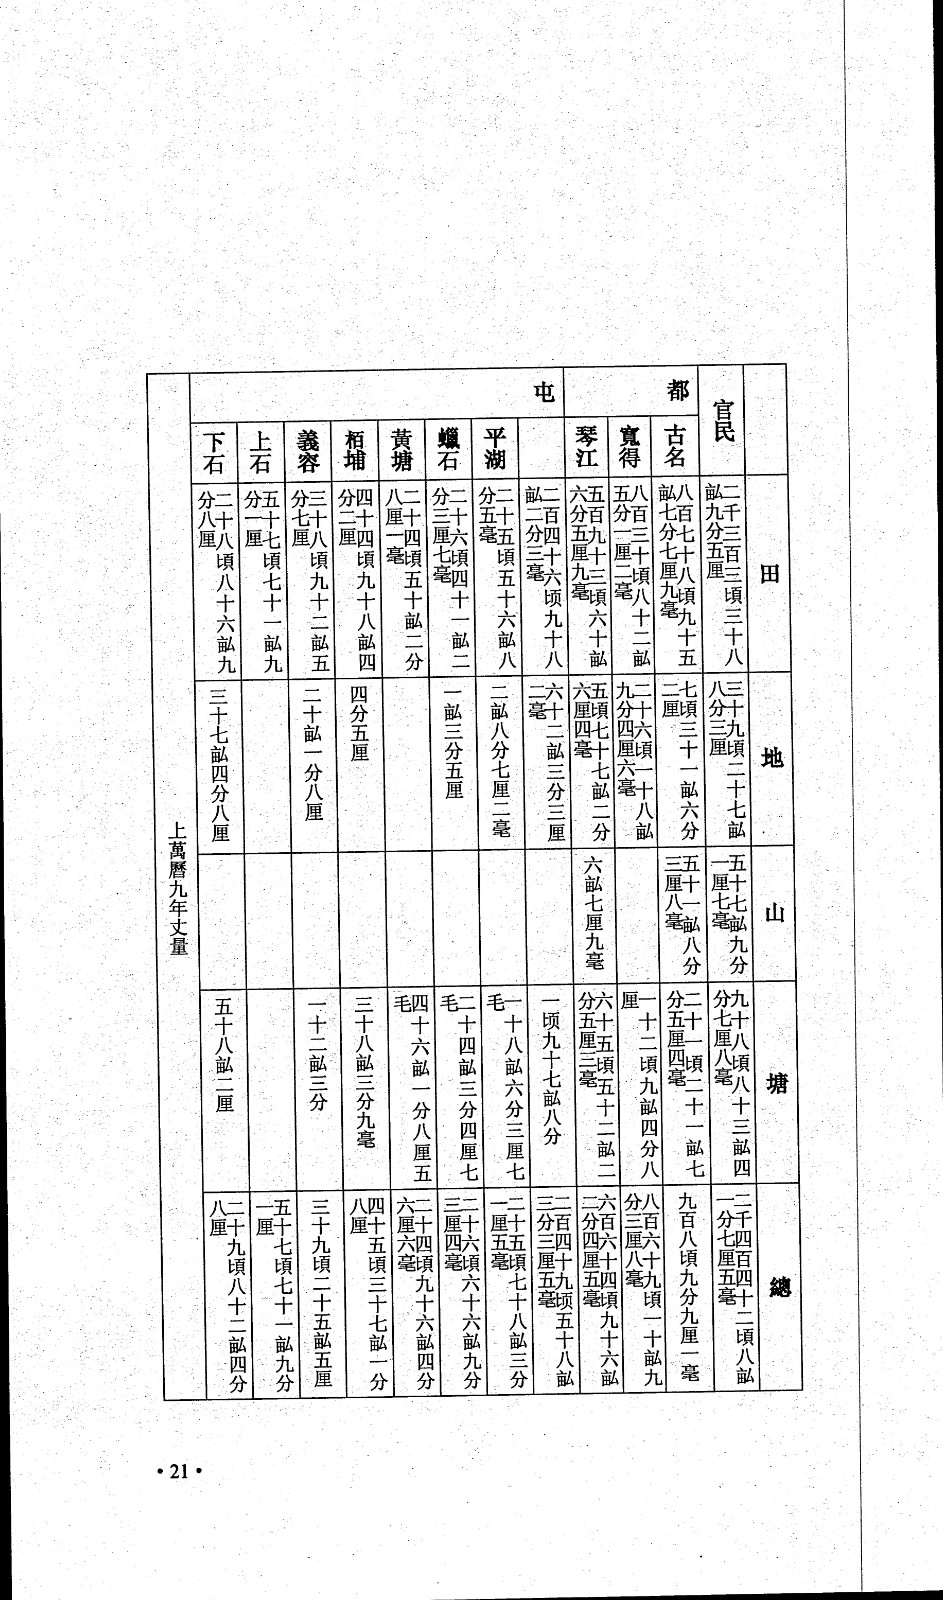 田
地
山
塘
總
官民
二千三百三頃三十八
畝九分五厘
三十九頃二十七畝
八分三厘
五十七畝九分
一厘七毫
九十八頃八十三畝四
分七厘八毫
二千四百四十二頃八畝
一分七厘五毫
都
古名
八百七十八頃九十五
畝七分七厘九毫
七頃三十一畝六分
二厘
五十一畝八分
三厘八毫
二十一頃二十一畝七
分五厘四毫
九百八頃九分九厘一毫
寬得
八百三十頃八十二畝
五分一厘二毫
二十六頃一十八畝
九分四厘六毫
一十二頃九畝四分八
厘
八百六十九頃一十畝九
分三厘八毫
琴江
五百九十三頃六十畝
六分五厘九毫
五頃七十七畝二分
六厘四毫
六畝七厘九毫
六十五頃五十二畝二
分五厘三毫
六百六十四頃九十六畝
二分四厘五毫
屯
二百四十六顷九十八
畝二分三毫
六十二畝三分三厘
二毫
一顷九十七畝八分
二百四十九顷五十八畝
三分三厘五毫
平湖
二十五頃五十六畝八
分五毫
二畝八分七厘二毫
一十八畝六分三厘七
毛
二十五頃七十八畝三分
一厘五毫
蠟石
二十六頃四十一畝二
分三厘七毫
一畝三分五厘
二十四畝三分四厘七
毛
二十六頃六十六畝九分
三厘四毫
黃塘
二十四頃五十畝二分
八厘一毫
四十六畝一分八厘五
毛
二十四頃九十六畝四分
六厘六毫
栢埔
四十四頃九十八畝四
分二厘
四分五厘
三十八畝三分九毫
四十五頃三十七畝一分
八厘
義容
三十八頃九十二畝五
分七厘
二十畝一分八厘
一十二畝三分
三十九頃二十五畝五厘
上石
五十七頃七十一畝九
分一厘
五十七頃七十一畝九分
一厘
下石
二十八頃八十六畝九
分八厘
三十七畝四分八厘
五十八畝二厘
二十九頃八十二畝四分
八厘
上萬曆九年丈量
·21·